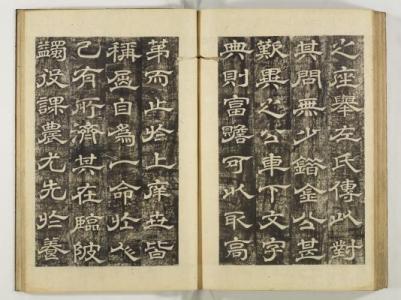 之座舉左氏傳以對
其問無少錯金公甚
歎異之公車下文字
典則富贍可以取高
第而止於上庠世皆
稱屈自爲一命於人
己有所濟其在臨陂
蠲役課農尤先於養